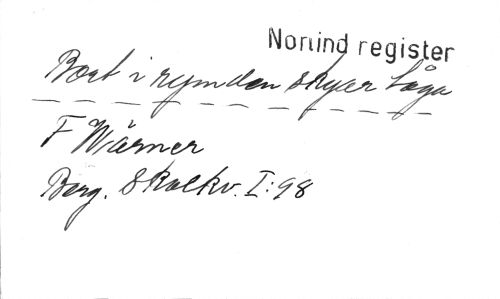 Norlind register
Bort i rymden skyar tåga
F Wärner
Berg. Skolkv. I:98